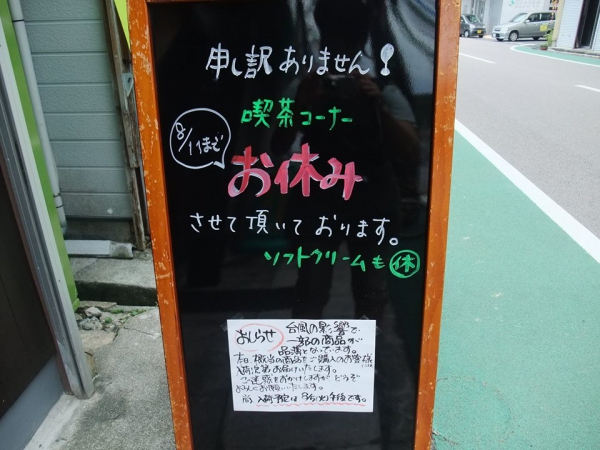 申し訳ありません!
喫茶コーナー
8/11まで
お休み
させて頂いております。
ソフトクリームも休
おしらせ
台風の影響で、
一部の商品が
品薄となっています。
本日、該当の商品をご購入のお客様には
入荷次第お届けいたします。
ご迷惑をおかけしますが、どうぞ
いたします。
入荷予定は 8/5(火)午後です。